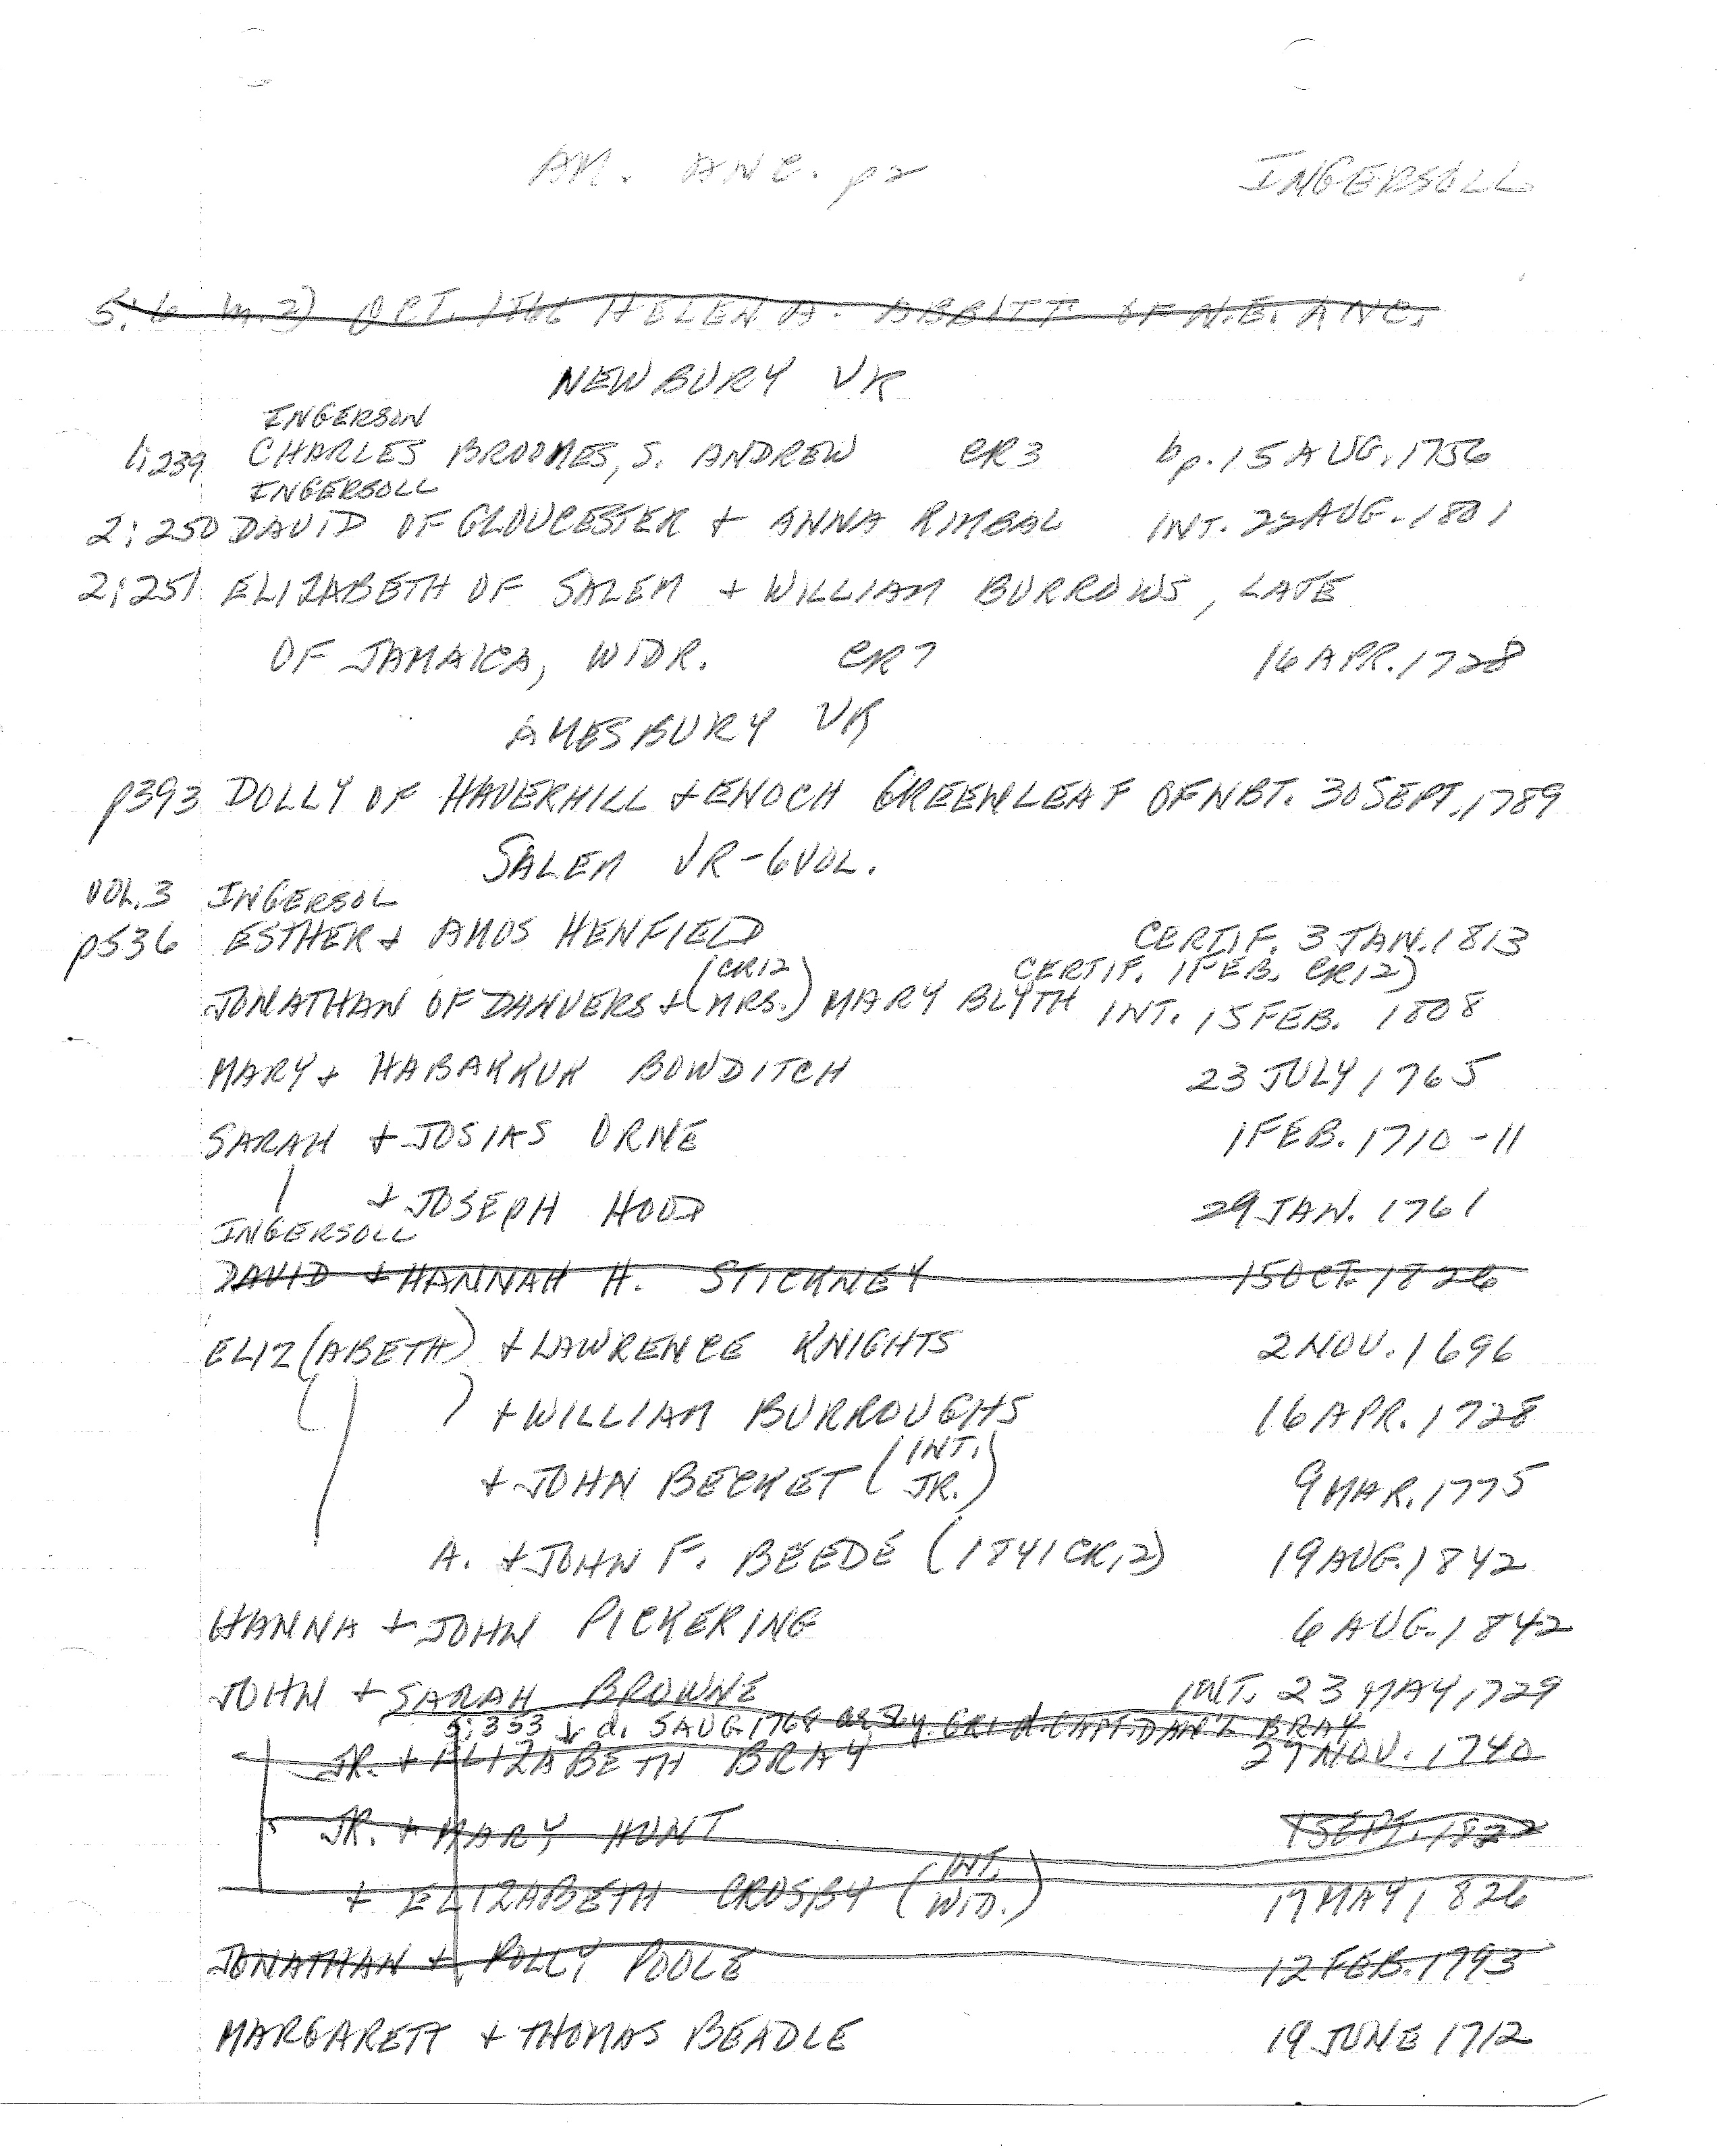 AM. ANC. p2 INGERSOLL
5:6 m.2) OCT. 1766 HELEN A. BBBITT OF N.E. ANC.
NEWBURY VR
INGERSON
1:239 CHARLES BROOMES, S. ANDREW CR3 bp. 15 AUG. 1756
INGERSOLL
2:250 DAVID OF GLOUCESTER + ANNA KIMBAL INT. 22 AUG. 1801
2:251 ELIZABETH OF SALEM + WILLIAM BURROWS, LATE
OF JAMAICA, WIDR. CR7 16 APR. 1728
AMESBURY VR
p393 DOLLY OF HAVERHILL + ENOCH GREENLEAF OF NBT. 30 SEPT. 1789
SALEM VR - 6 VOL.
VOL. 3 INGERSOL
p536 ESTHER + AMOS HENFIELD CERTIF. 3 JAN. 1813
(CR12 CERTIF. 1 FEB. CR12)
JONATHAN OF DANVERS + (MRS.) MARY BLYTH INT. 15 FEB. 1808
MARY + HABAKKUK BOWDITCH 23 JULY 1765
SARAH + JOSIAS ORNE 1 FEB. 1710-11
+ JOSEPH HOOD 29 JAN. 1761
INGERSOLL
DAVID + HANNAH H. STICKNEY 15 OCT. 1826
ELIZ(ABETH) + LAWRENCE KNIGHTS 2 NOV. 1696
( ) + WILLIAM BURROUGHS 16 APR. 1728
+ JOHN BECKET (INT. JR.) 9 MAR. 1775
A. + JOHN F. BEEDE (1841 CR12) 19 AUG. 1842
HANNA + JOHN PICKERING 6 AUG. 1842
JOHN + SARAH BROWNE INT. 23 MAY 1729
5:353 d. 5 AUG 1768 GR1 d. CAPT. DAN'L BRAY
JR. + ELIZABETH BRAY 27 NOV. 1740
JR. + MARY HUNT 1 SEPT. 1822
+ ELIZABETH CROSBY (INT. WID.) 17 MAY 1826
JONATHAN + POLLY POOLE 12 FEB. 1793
MARGARETT + THOMAS BEADLE 19 JUNE 1712